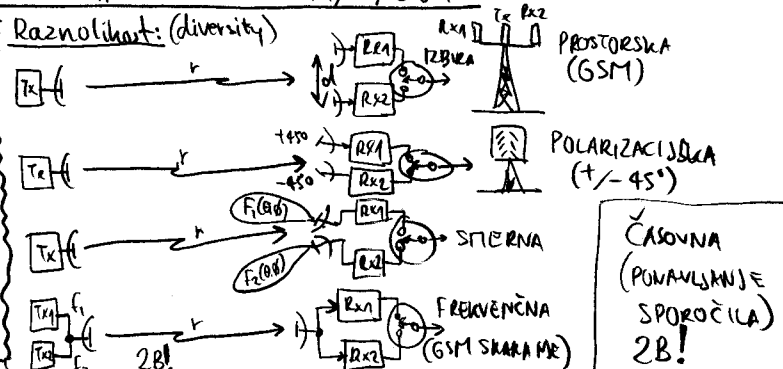 Raznolikost: (diversity)
Tx
r
d
Rx1
Rx2
IZBIRA
Rx1 Tx Rx2
PROSTORSKA
(GSM)
Tx
r
+45°
-45°
Rx1
Rx2
POLARIZACIJSKA
(+/- 45°)
Tx
r
F₁(θ,ϕ)
F₂(θ,ϕ)
Rx1
Rx2
SMERNA
Tx1
Tx2
f₁
2B!
r
Rx1
Rx2
FREKVENČNA
(GSM SKAKANJE)
ČASOVNA
(PONAVLJANJE
SPOROČILA)
2B!